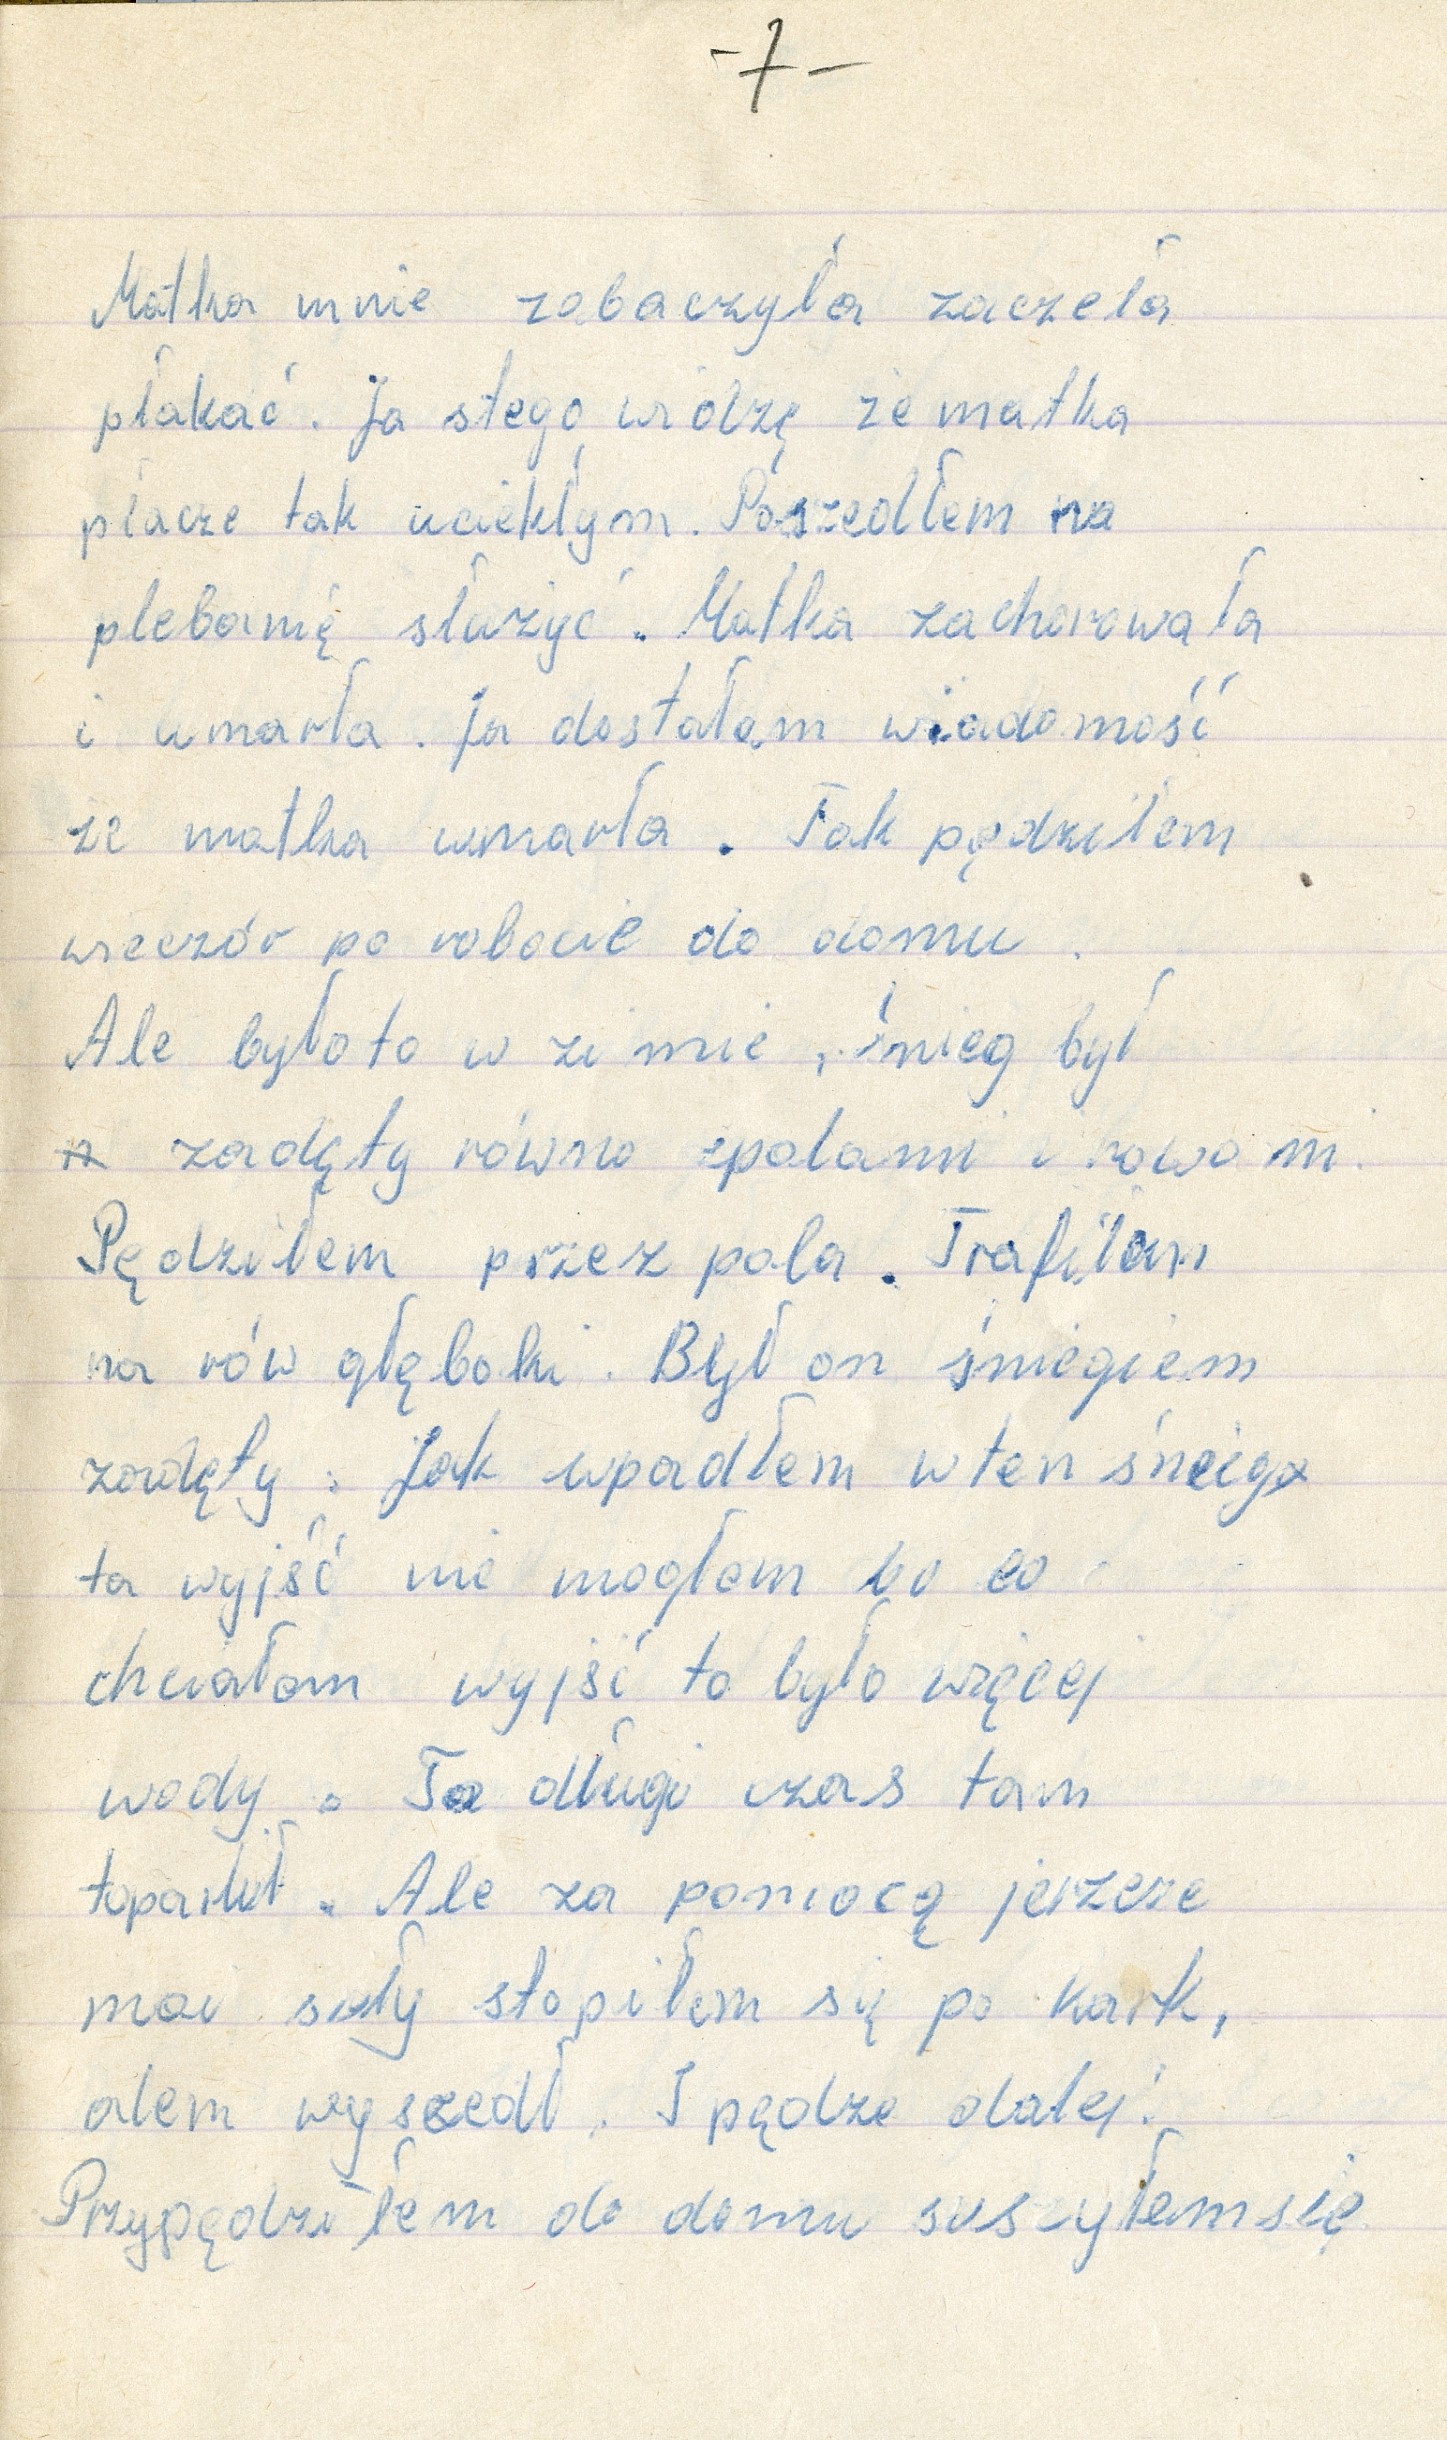 -7-
Matka mnie zobaczyła zaczeła
płakać. Ja stego widzę że matka
płacze tak uciekłym. Poszedłem na
plebanię służyć. Matka zachorowała
i umarła. Ja dostałem wiadomość
że matka umarła. Tak pędziłem
wieczór po robocie do domu.
Ale było to w zimie, śnieg był
zadęty równo zpolami i rowami.
Pędziłem przez pola. Trafiłem
na rów głęboki. Był on śniegiem
zadęty. Jak wpadłem w ten śneig
to wyjść nie mogłem bo co
chciałem wyjść to było więcej
wody. To długi czas tam
Ale za pomocą jerzcze
moi siły stopiłem się po kark,
alem wyszedł. I pędze dalej.
Przypędziłem do domu suszyłem się